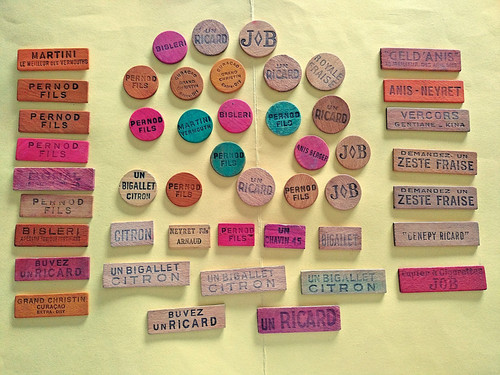 MARTINI
LE MEILLEUR DES VERMOUTHS
PERNOD
FILS
PERNOD
FILS
PERNOD
FILS
PERNOD
FILS
BISLERI
BUVEZ
UN RICARD
GRAND CHRISTIN
CURAÇAO
EXTRA-DRY
BISLERI
UN
RICARD
JOB
PERNOD
FILS
CURAÇAO
GRAND
CHRISTIN
CURAÇAO
GRAND
CHRISTIN
UN
RICARD
ROYALE
FRAISE
PERNOD
FILS
MARTINI
VERMOUTH
BISLERI
PERNOD
FILS
UN
RICARD
PERNOD
FILS
ANIS BERGER
JOB
UN
BIGALLET
CITRON
PERNOD
FILS
UN
RICARD
PERNOD
FILS
JOB
CITRON
NEYRET
ARNAUD
PERNOD
FILS
UN
CHAVIN 45
BIGALLET
UN BIGALLET
CITRON
UN BIGALLET
CITRON
UN BIGALLET
CITRON
BUVEZ
UN RICARD
UN RICARD
"GELD'ANIS"
ANIS-NEYRET
VERCORS
GENTIANE - KINA
DEMANDEZ UN
ZESTE FRAISE
DEMANDEZ UN
ZESTE FRAISE
"GENEPY RICARD"
Papier à Cigarettes
JOB